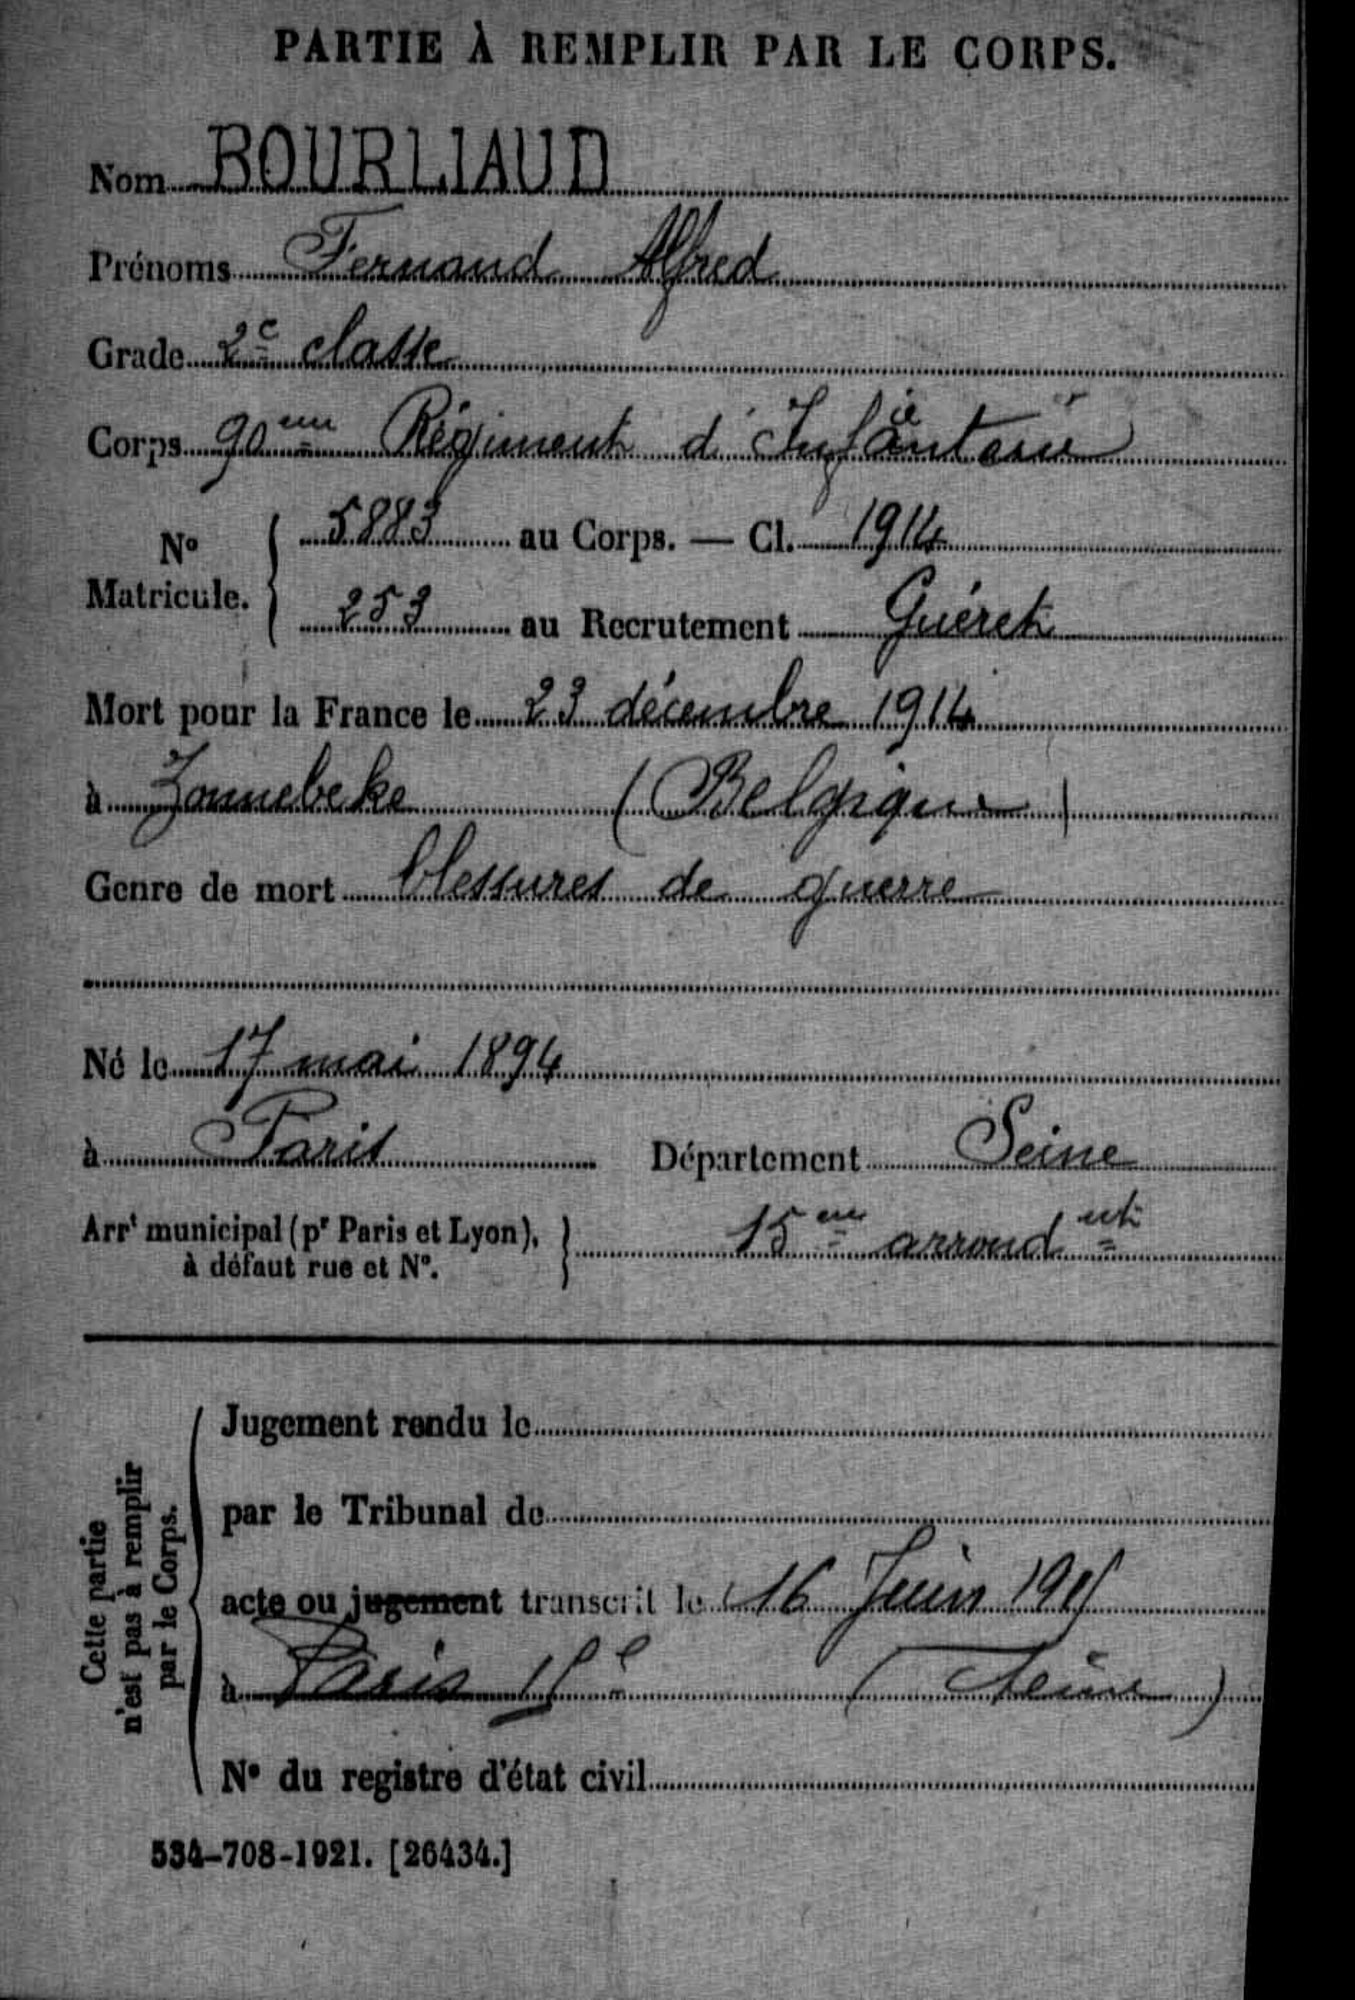 PARTIE À REMPLIR PAR LE CORPS.
Nom BOURLIAUD
Prénoms Fernand Alfred
Grade 2e classe
Corps 90eme Régiment d'Infanterie
No Matricule. { 5883 au Corps. — Cl. 1914
253 au Recrutement Guéret
Mort pour la France le 23 décembre 1914
à Zonnebeke (Belgique)
Genre de mort blessures de guerre
Né le 17 mai 1894
à Paris Département Seine
Arrt municipal (pr Paris et Lyon), à défaut rue et No. } 15eme arrondent
Cette partie n'est pas à remplir par le Corps.
Jugement rendu le
par le Tribunal de
acte ou jugement transcrit le 16 Juin 1915
à Paris 15e (Seine)
No du registre d'état civil
534-708-1921. [26434.]